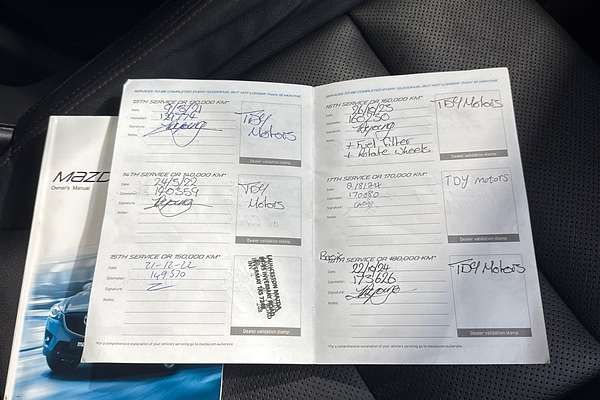 SERVICES TO BE COMPLETED EVERY 10,000KM, BUT NOT LONGER THAN 12 MONTHS
13TH SERVICE OR 130,000 KM*
Date: 9/5/21
Odometer: 129774
Signature:
Notes:
TDY Motors
Dealer validation stamp
14TH SERVICE OR 140,000 KM*
Date: 24/5/22
Odometer: 140559
Signature:
Notes:
TDY Motors
Dealer validation stamp
15TH SERVICE OR 150,000 KM*
Date: 21-12-22
Odometer: 149570
Signature:
Notes:
Dealer validation stamp
*For a comprehensive explanation of your vehicle's servicing go to mazda.com.au/service
SERVICES TO BE COMPLETED EVERY 10,000KM, BUT NOT LONGER THAN 12 MONTHS
16TH SERVICE OR 160,000 KM*
Date:
Odometer:
Signature:
Notes:
+ Fuel Filter
+ Rotate Wheels
TDY Motors
Dealer validation stamp
17TH SERVICE OR 170,000 KM*
Date:
Odometer:
Signature:
Notes:
TDY motors
Dealer validation stamp
18TH SERVICE OR 180,000 KM*
Date: 22/10/24
Odometer: 173626
Signature:
Notes:
TDY Motors
Dealer validation stamp
*For a comprehensive explanation of your vehicle's servicing go to mazda.com.au/service
Owner's Manual